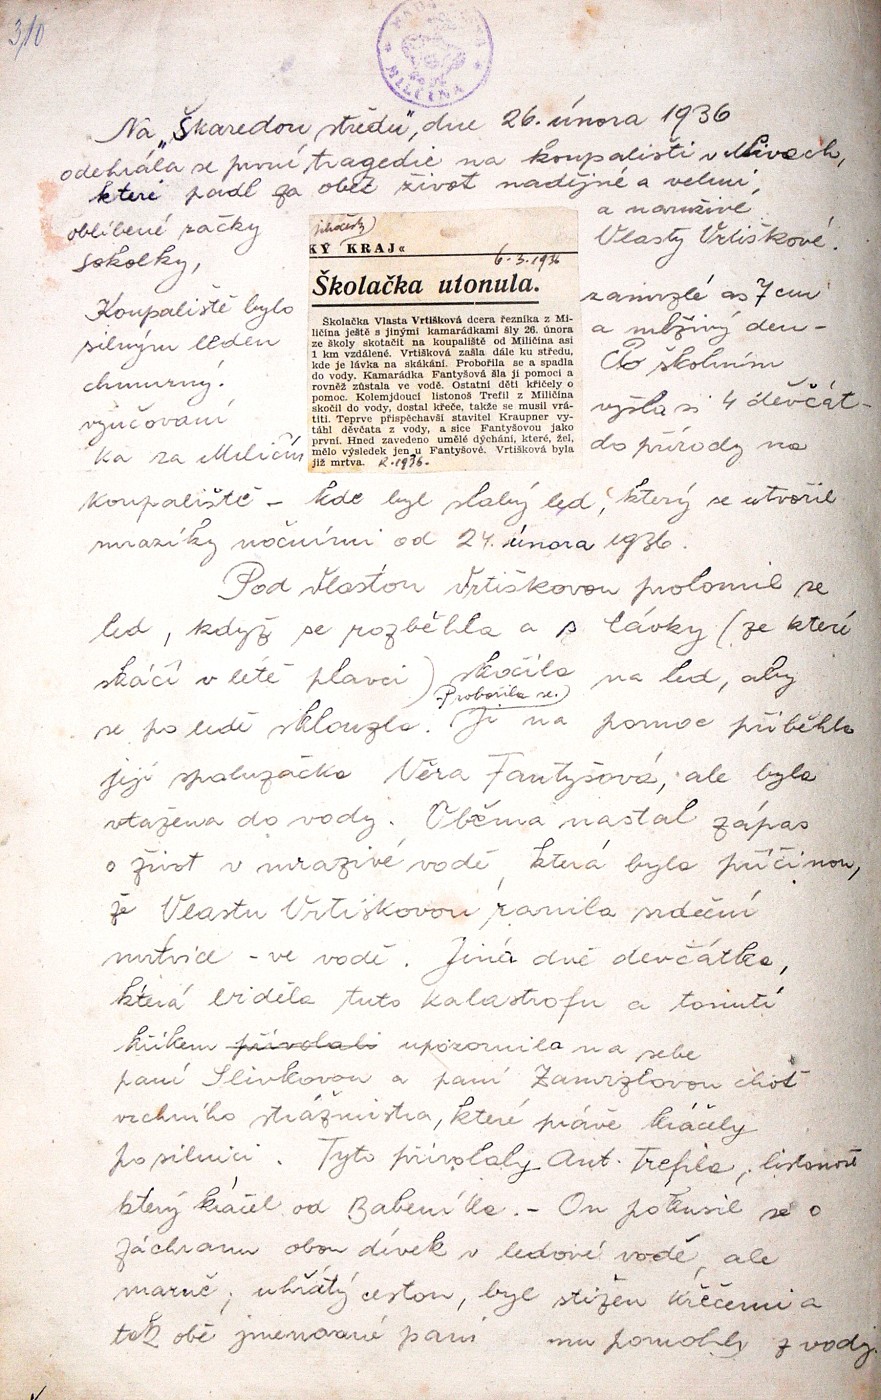 310
MILIČÍNA
Na „Škaredou středu", dne 26. února 1936
odehrála se první tragedie na koupališti v Nivách,
které padl za oběť život nadějné a velmi
oblíbené žačky a naruživé
sokolky, Vlasty Vrtiškové.
Koupaliště bylo zamrzlé as 7 cm
silným ledem a mlživý den -
chmurný. Po školním
vyučovaní vyšla si 4 děvčát-
ka za Miličín do přírody na
jihočeský
KÝ KRAJ«
6.3.1936
Školačka utonula.
Školačka Vlasta Vrtišková dcera řezníka z Mi-
ličína ještě s jinými kamarádkami šly 26. února
ze školy skotačit na koupaliště od Miličína asi
1 km vzdálené. Vrtišková zašla dále ku středu,
kde je lávka na skákání. Probořila se a spadla
do vody. Kamarádka Fantyšová šla jí pomoci a
rovněž zůstala ve vodě. Ostatní děti křičely o
pomoc. Kolemjdoucí listonoš Trefil z Miličína
skočil do vody, dostal křeče, takže se musil vrá-
titi. Teprve přispěchavší stavitel Kraupner vy-
táhl děvčata z vody, a sice Fantyšovou jako
první. Hned zavedeno umělé dýchání, které, žel,
mělo výsledek jen u Fantyšové. Vrtišková byla
již mrtva. R. 1936.
koupaliště - kde byl slabý led, který se utvořil
mrazíky nočními od 24. února 1936.
Pod Vlastou Vrtiškovou prolomil se
led, když se rozběhla a s lávky (ze které
skáčí v létě plavci) skočila na led, aby
Probořila se.
se po ledě sklouzla. Jí na pomoc přiběhla
její spolužačka Věra Fantyšová, ale byla
vtažena do vody. Oběma nastal zápas
o život v mrazivé vodě, která byla příčinou,
že Vlastu Vrtiškovou ranila srdeční
mrtvice - ve vodě. Jiná dvě děvčátka,
která viděla tuto katastrofu a tonutí
křikem přivolali upozornila na sebe
paní Slivkovou a paní Zamrzlovou choť
vrchního strážmistra, které právě kráčely
po silnici. Tyto přivolaly Ant. Trefila, listonoš
který kráčel od Babeníka. - On pokusil se o
záchranu obou dívek v ledové vodě, ale
marně; uhřátý cestou, byl stižen křečemi a
tak obě jmenované paní mu pomohly z vody.